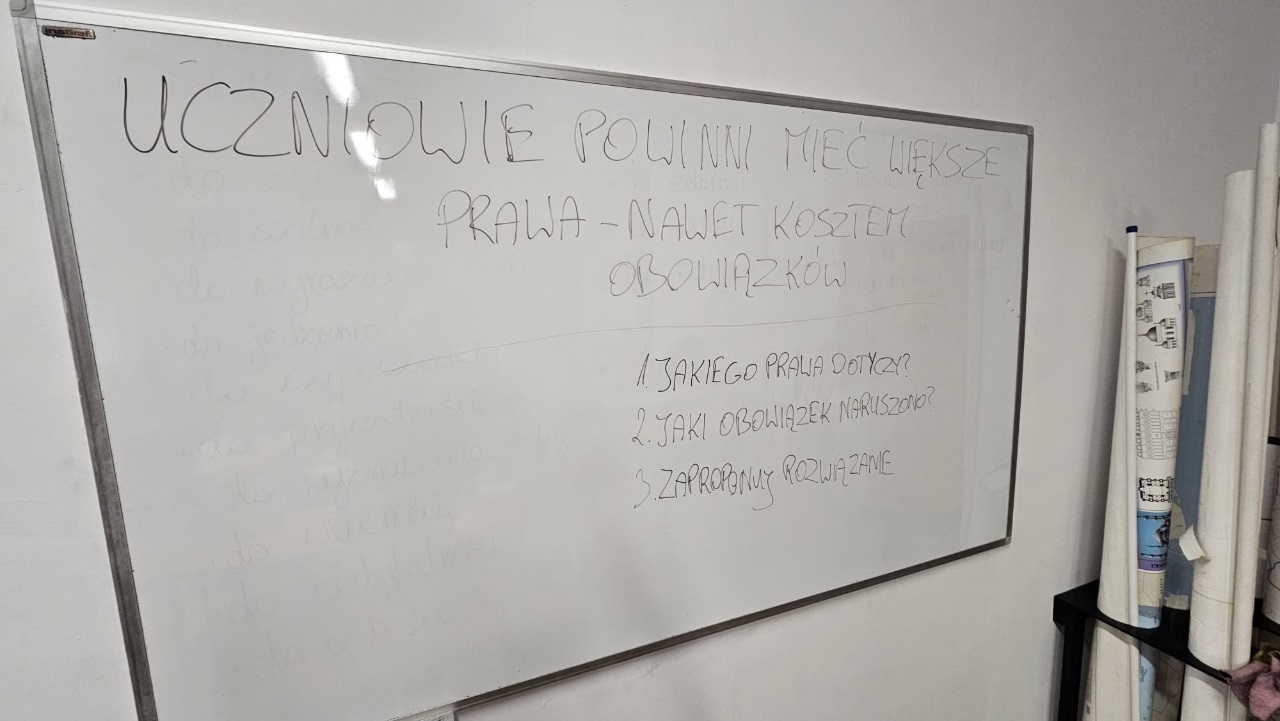 UCZNIOWIE POWINNI MIEĆ WIĘKSZE
PRAWA – NAWET KOSZTEM
OBOWIĄZKÓW
1. JAKIEGO PRAWA DOTYCZY?
2. JAKI OBOWIĄZEK NARUSZONO?
3. ZAPROPONUJ ROZWIĄZANIE